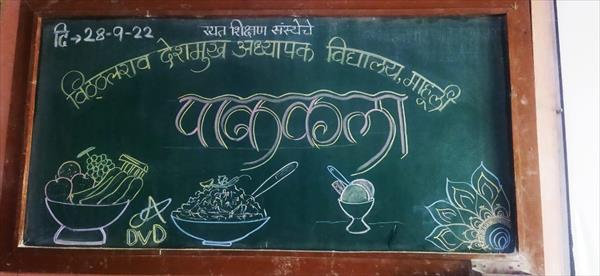 दि→28-9-22
रयत शिक्षण संस्थेचे
विठ्ठलराव देशमुख अध्यापक विद्यालय, माहूली
पाककला
DVD